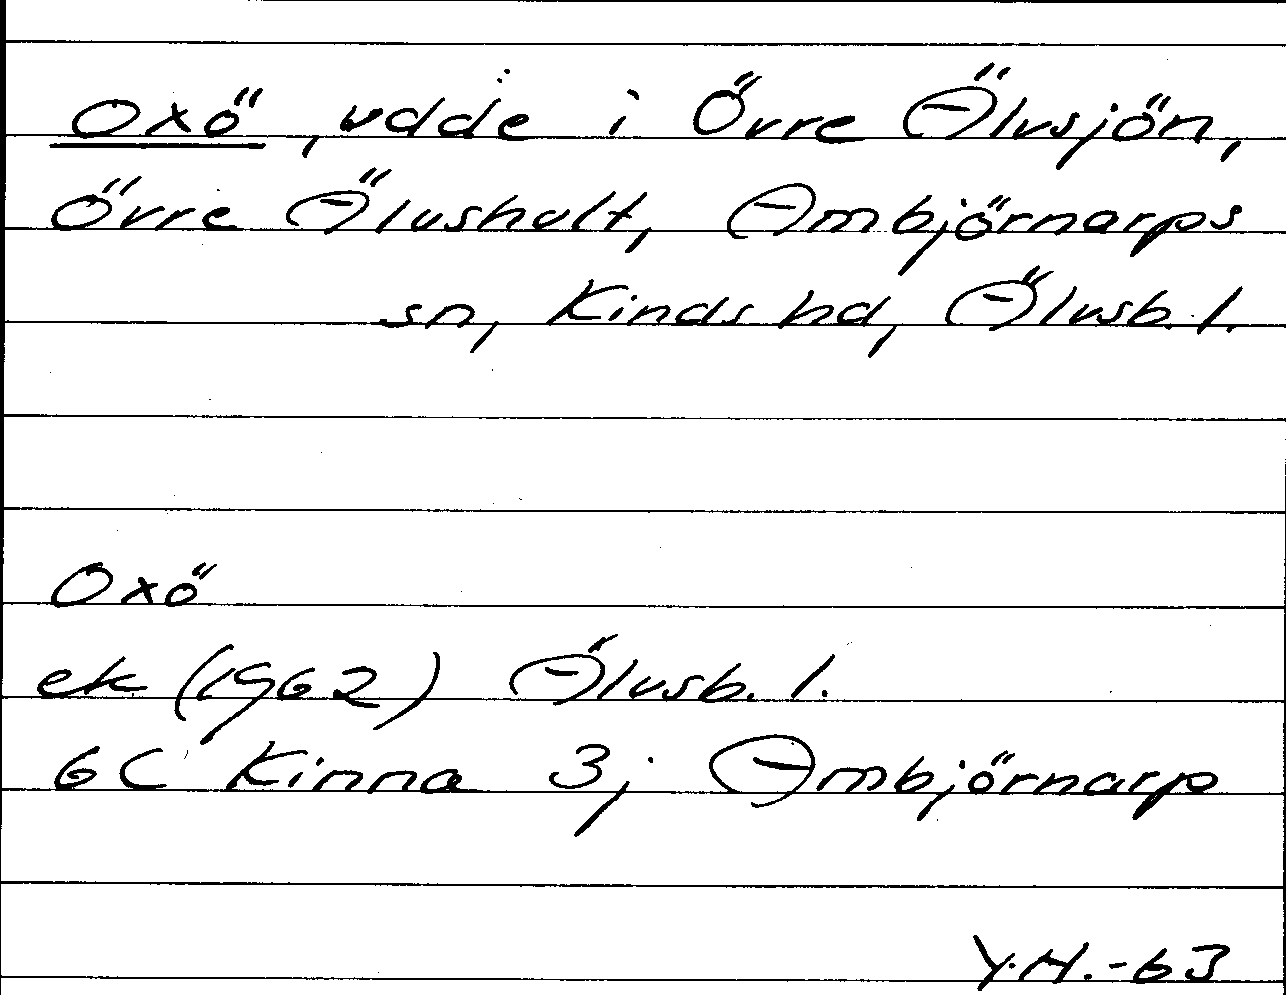 Oxö, udde i Övre Älvsjön,
Övre Älvshult, Ambjörnarps
sn, Kinds hd, Älvsb. l.
Oxö
ek (1962) Älvsb. l.
6C Kinna 3j Ambjörnarp
Y.H.-63